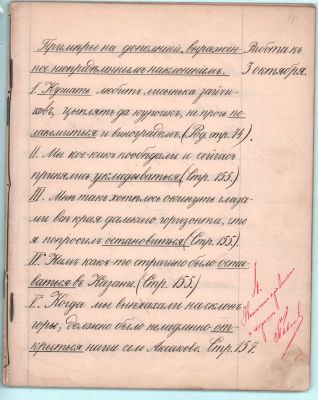 Примѣры на дополненіе, выражен-
ное неопредѣленнымъ наклоненіемъ.
Работа къ
3 октября.
I. Кушать любитъ лисынька зайчи-
ковъ, цыплятъ да курочекъ, не прочь по-
лакомиться и виноградомъ. (Род. стр. 74).
II. Мы кое-какъ пообѣдали и сейчасъ
принялись укладываться (Стр. 155.)
III. Мнѣ такъ хотѣлось окинуть глаза-
ми всѣ края дальняго горизонта, что
я попросилъ остановиться (Стр. 155)
IV. Намъ какъ-то страшно было оста-
ваться въ Казани. (Стр. 155)
V. Когда мы выѣхали на склонъ
горы, должно было немедленно от-
крыться наше село Аксаково. Стр. 157.